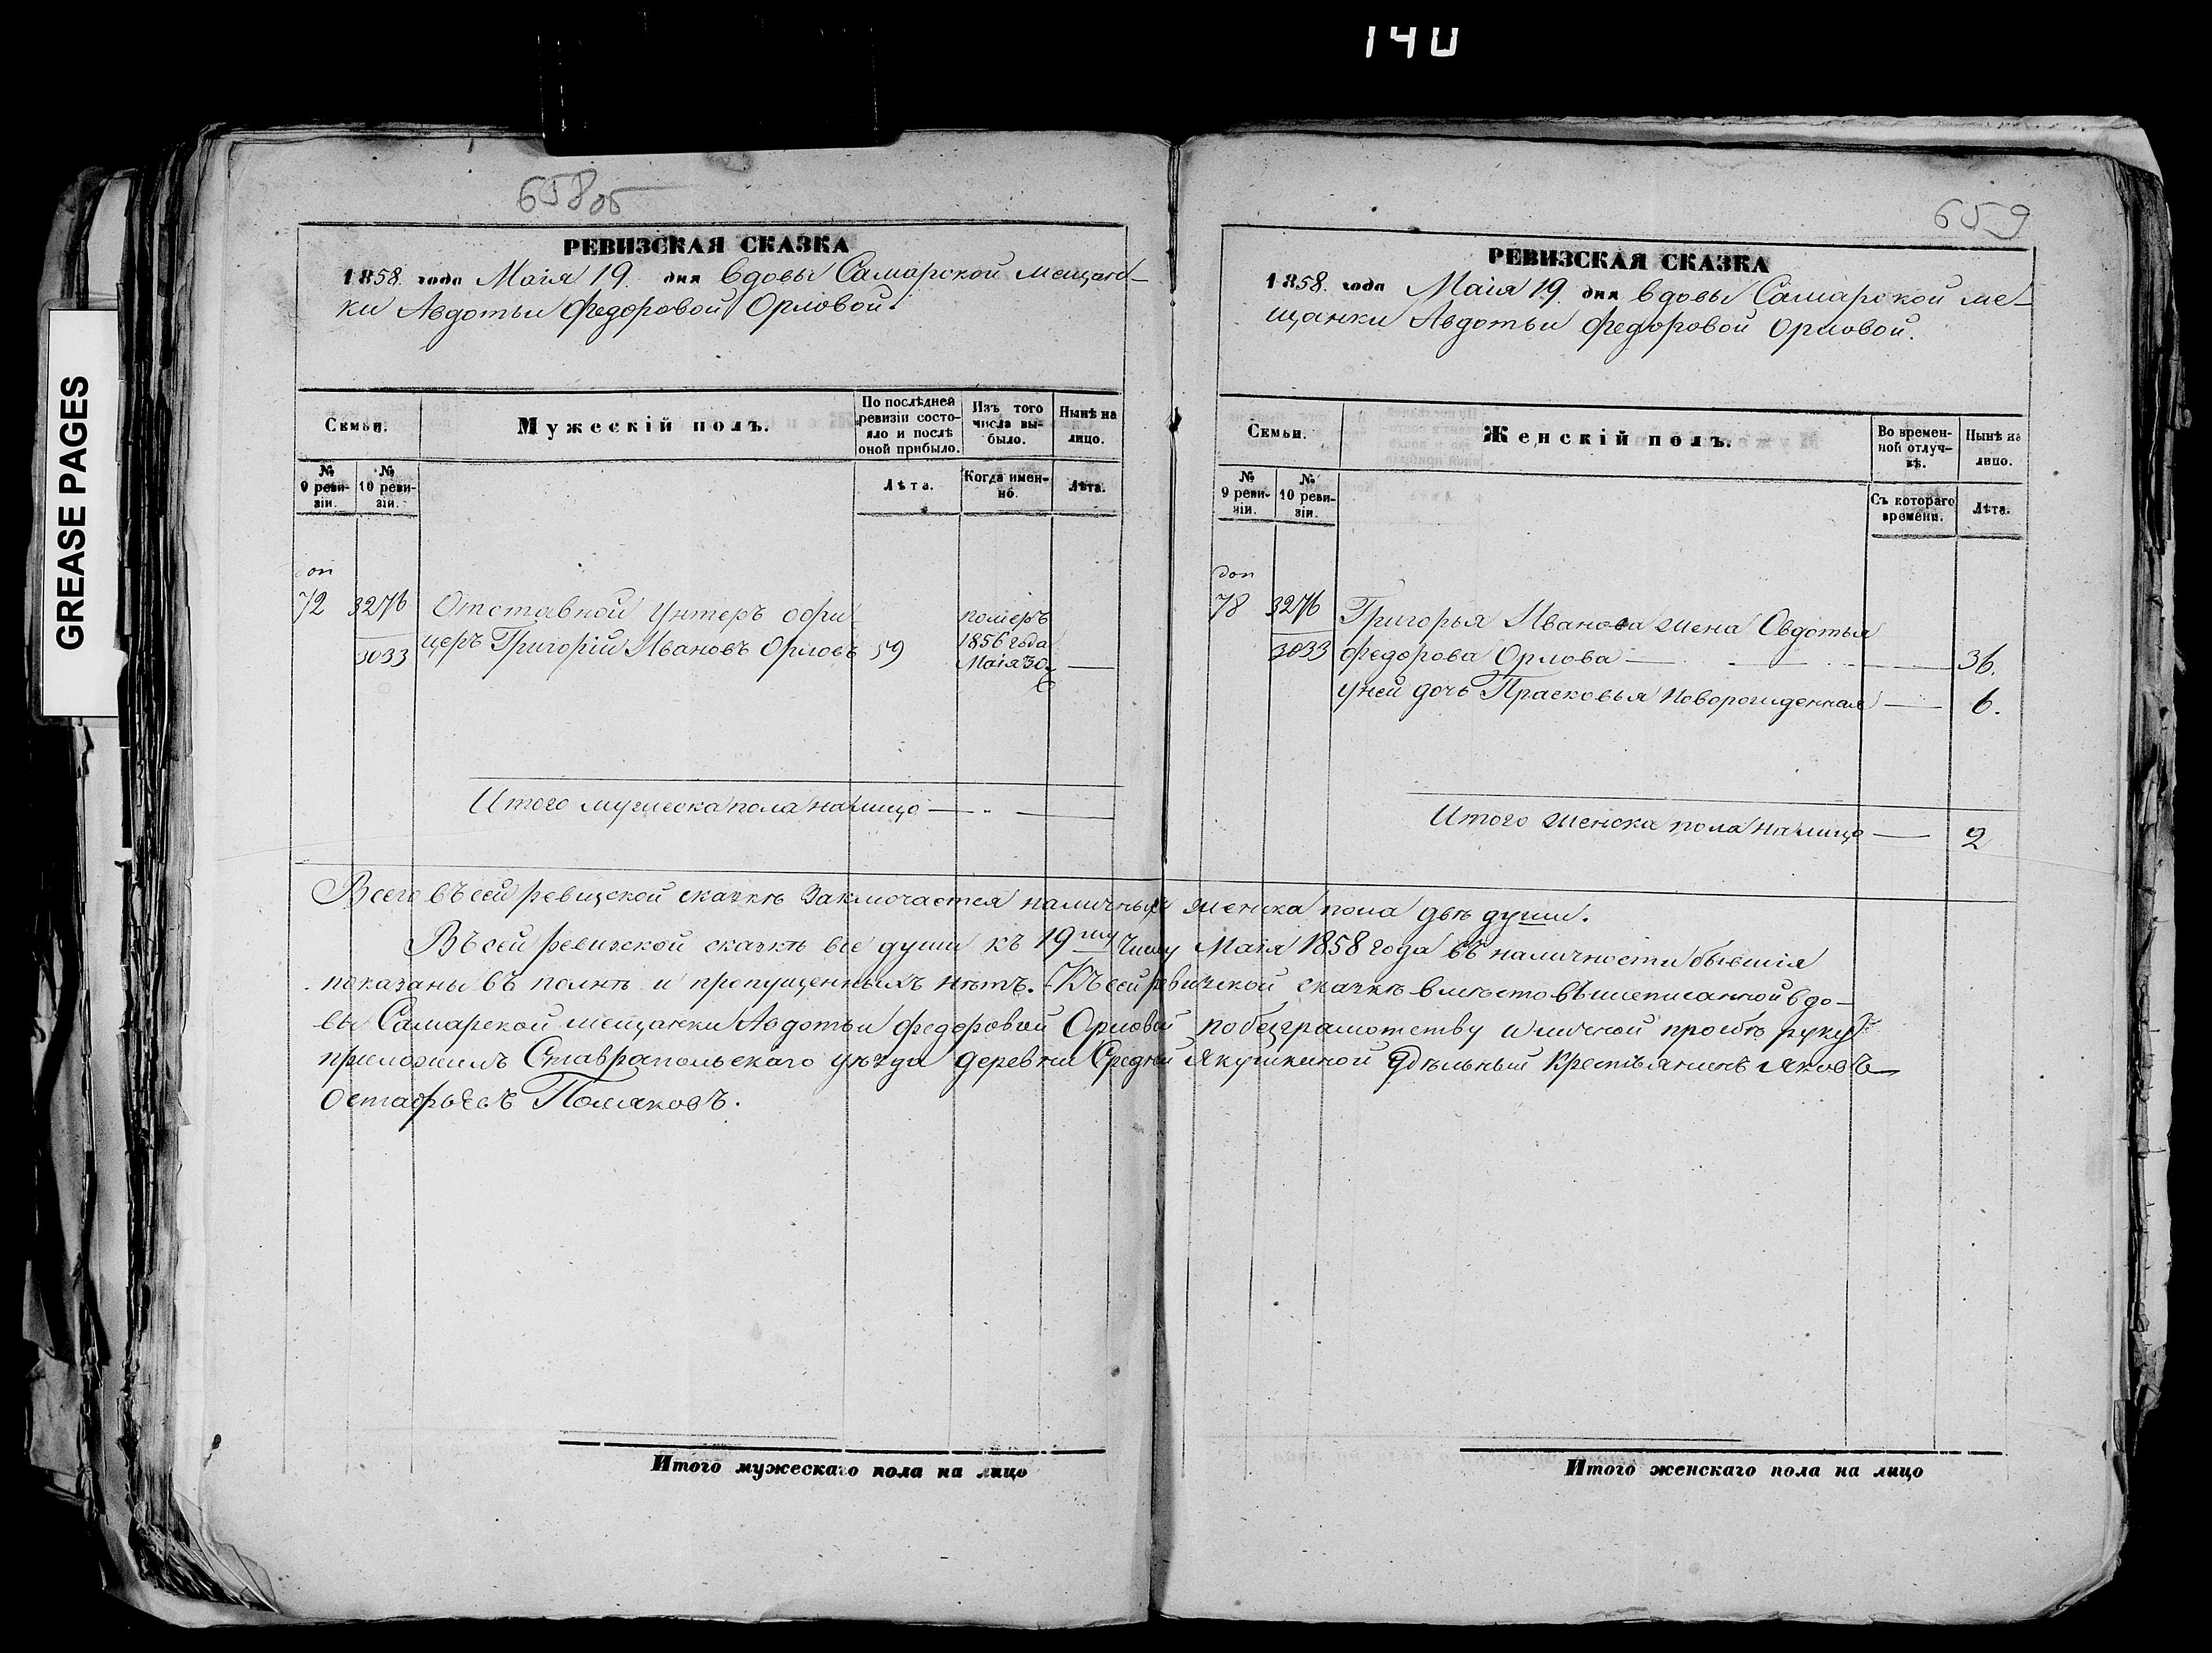 140
GREASE PAGES
658об
РЕВИЗСКАЯ СКАЗКА
1858. года Маія 19. дня вдовы Самарской мещан-
ки Авдотьи Федоровой Орловой.
Семьи.
Мужескій полъ.
По послѣдней ревизіи состояло и послѣ оной прибыло.
Изъ того числа выбыло.
Нынѣ на лицо.
№ 9 ревизіи.
№ 10 ревизіи.
Лѣта.
Когда именно.
Лѣта.
72 3276 Отставной Унтеръ офи
3033 церъ Григорій Ивановъ Орловъ 59
померъ
1856 года
Маія 30
Итого мужеска пола налицо
659
РЕВИЗСКАЯ СКАЗКА
1858. года Маія 19. дня вдовы Самарской ме-
щанки Авдотьи Федоровой Орловой.
Семьи.
Женскій полъ.
Во временной отлучкѣ.
Нынѣ на лицо.
№ 9 ревизіи.
№ 10 ревизіи.
Съ котораго времени.
Лѣта.
доп
78 3276 Григорья Иванова жена Овдотья
3033 Федорова Орлова 36.
у ней дочь Прасковья новорожденная 6.
Итого женска пола налицо 2
Всего въ сей ревизской сказкѣ заключается наличныхъ женска пола двѣ души.
Въ сей ревизской сказкѣ все души къ 19му числу Маія 1858 года въ наличности бывшія
показаны въ полнѣ и пропущенныхъ нѣтъ. Къ сей ревизской сказкѣ вместо вышеписанной вдо-
вы Самарской мещанки Авдотьи Федоровой Орловой по безграмотству и личной прозбѣ руку
приложилъ Ставропольскаго уѣзда деревни Средней Якушкиной Удѣльный Крестьянинъ Яковъ
Остафьевъ Поляковъ.
Итого мужескаго пола на лицо
Итого женскаго пола на лицо